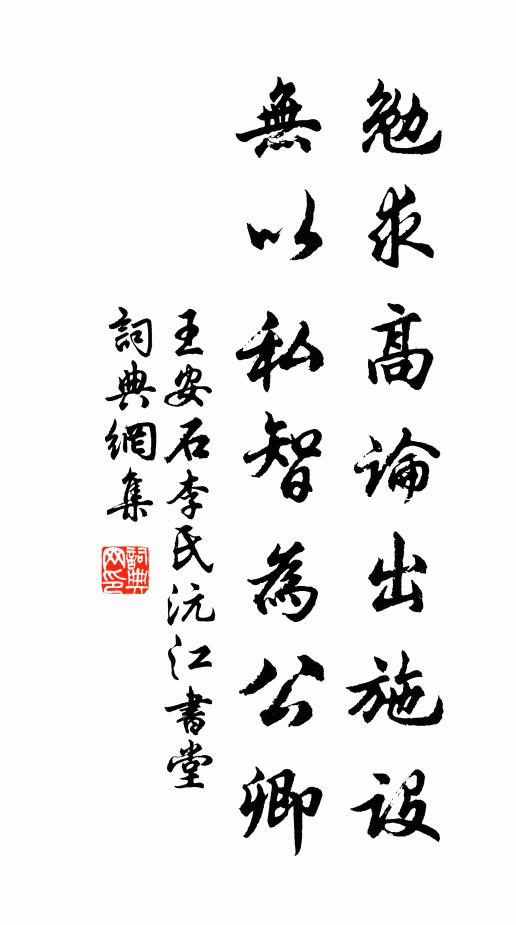 勉求高論出施設
無以私智為公卿
王安石李氏沅江書堂
詞典網集
詞典
网印